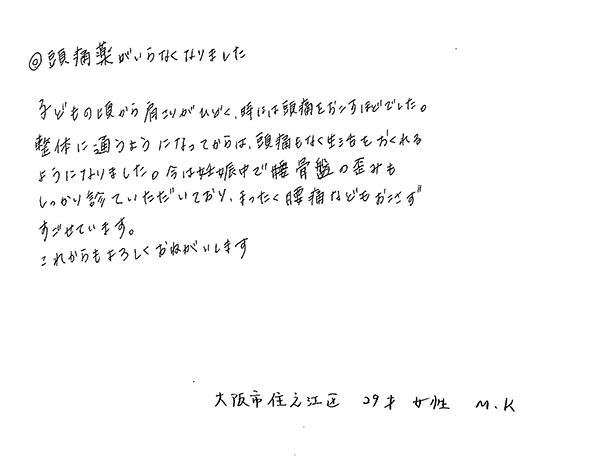 ◎頭痛薬がいらなくなりました
子どもの頃から肩こりがひどく、時には頭痛をおこすほどでした。
整体に通うようになってからは、頭痛もなく生活をおくれる
ようになりました。今は妊娠中で腰骨盤の歪みも
しっかり診ていただいており、まったく腰痛などもおこさず
すごせています。
これからもよろしくおねがいします
大阪市住之江区 29才 女性 M.K